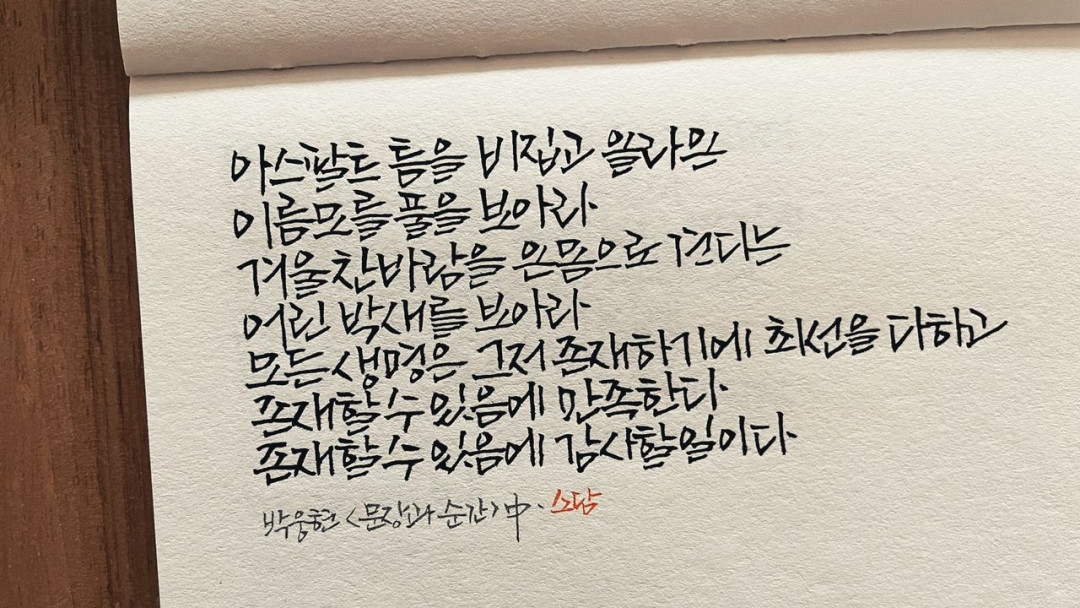 아스팔트 틈을 비집고 올라온
이름모를 풀을 보아라
겨울 찬바람을 온몸으로 견디는
어린 박새를 보아라
모든 생명은 그저 존재하기에 최선을 다하고
존재할 수 있음에 만족한다
존재할 수 있음에 감사할 일이다
박웅현 <문장과 순간> 中. 소담